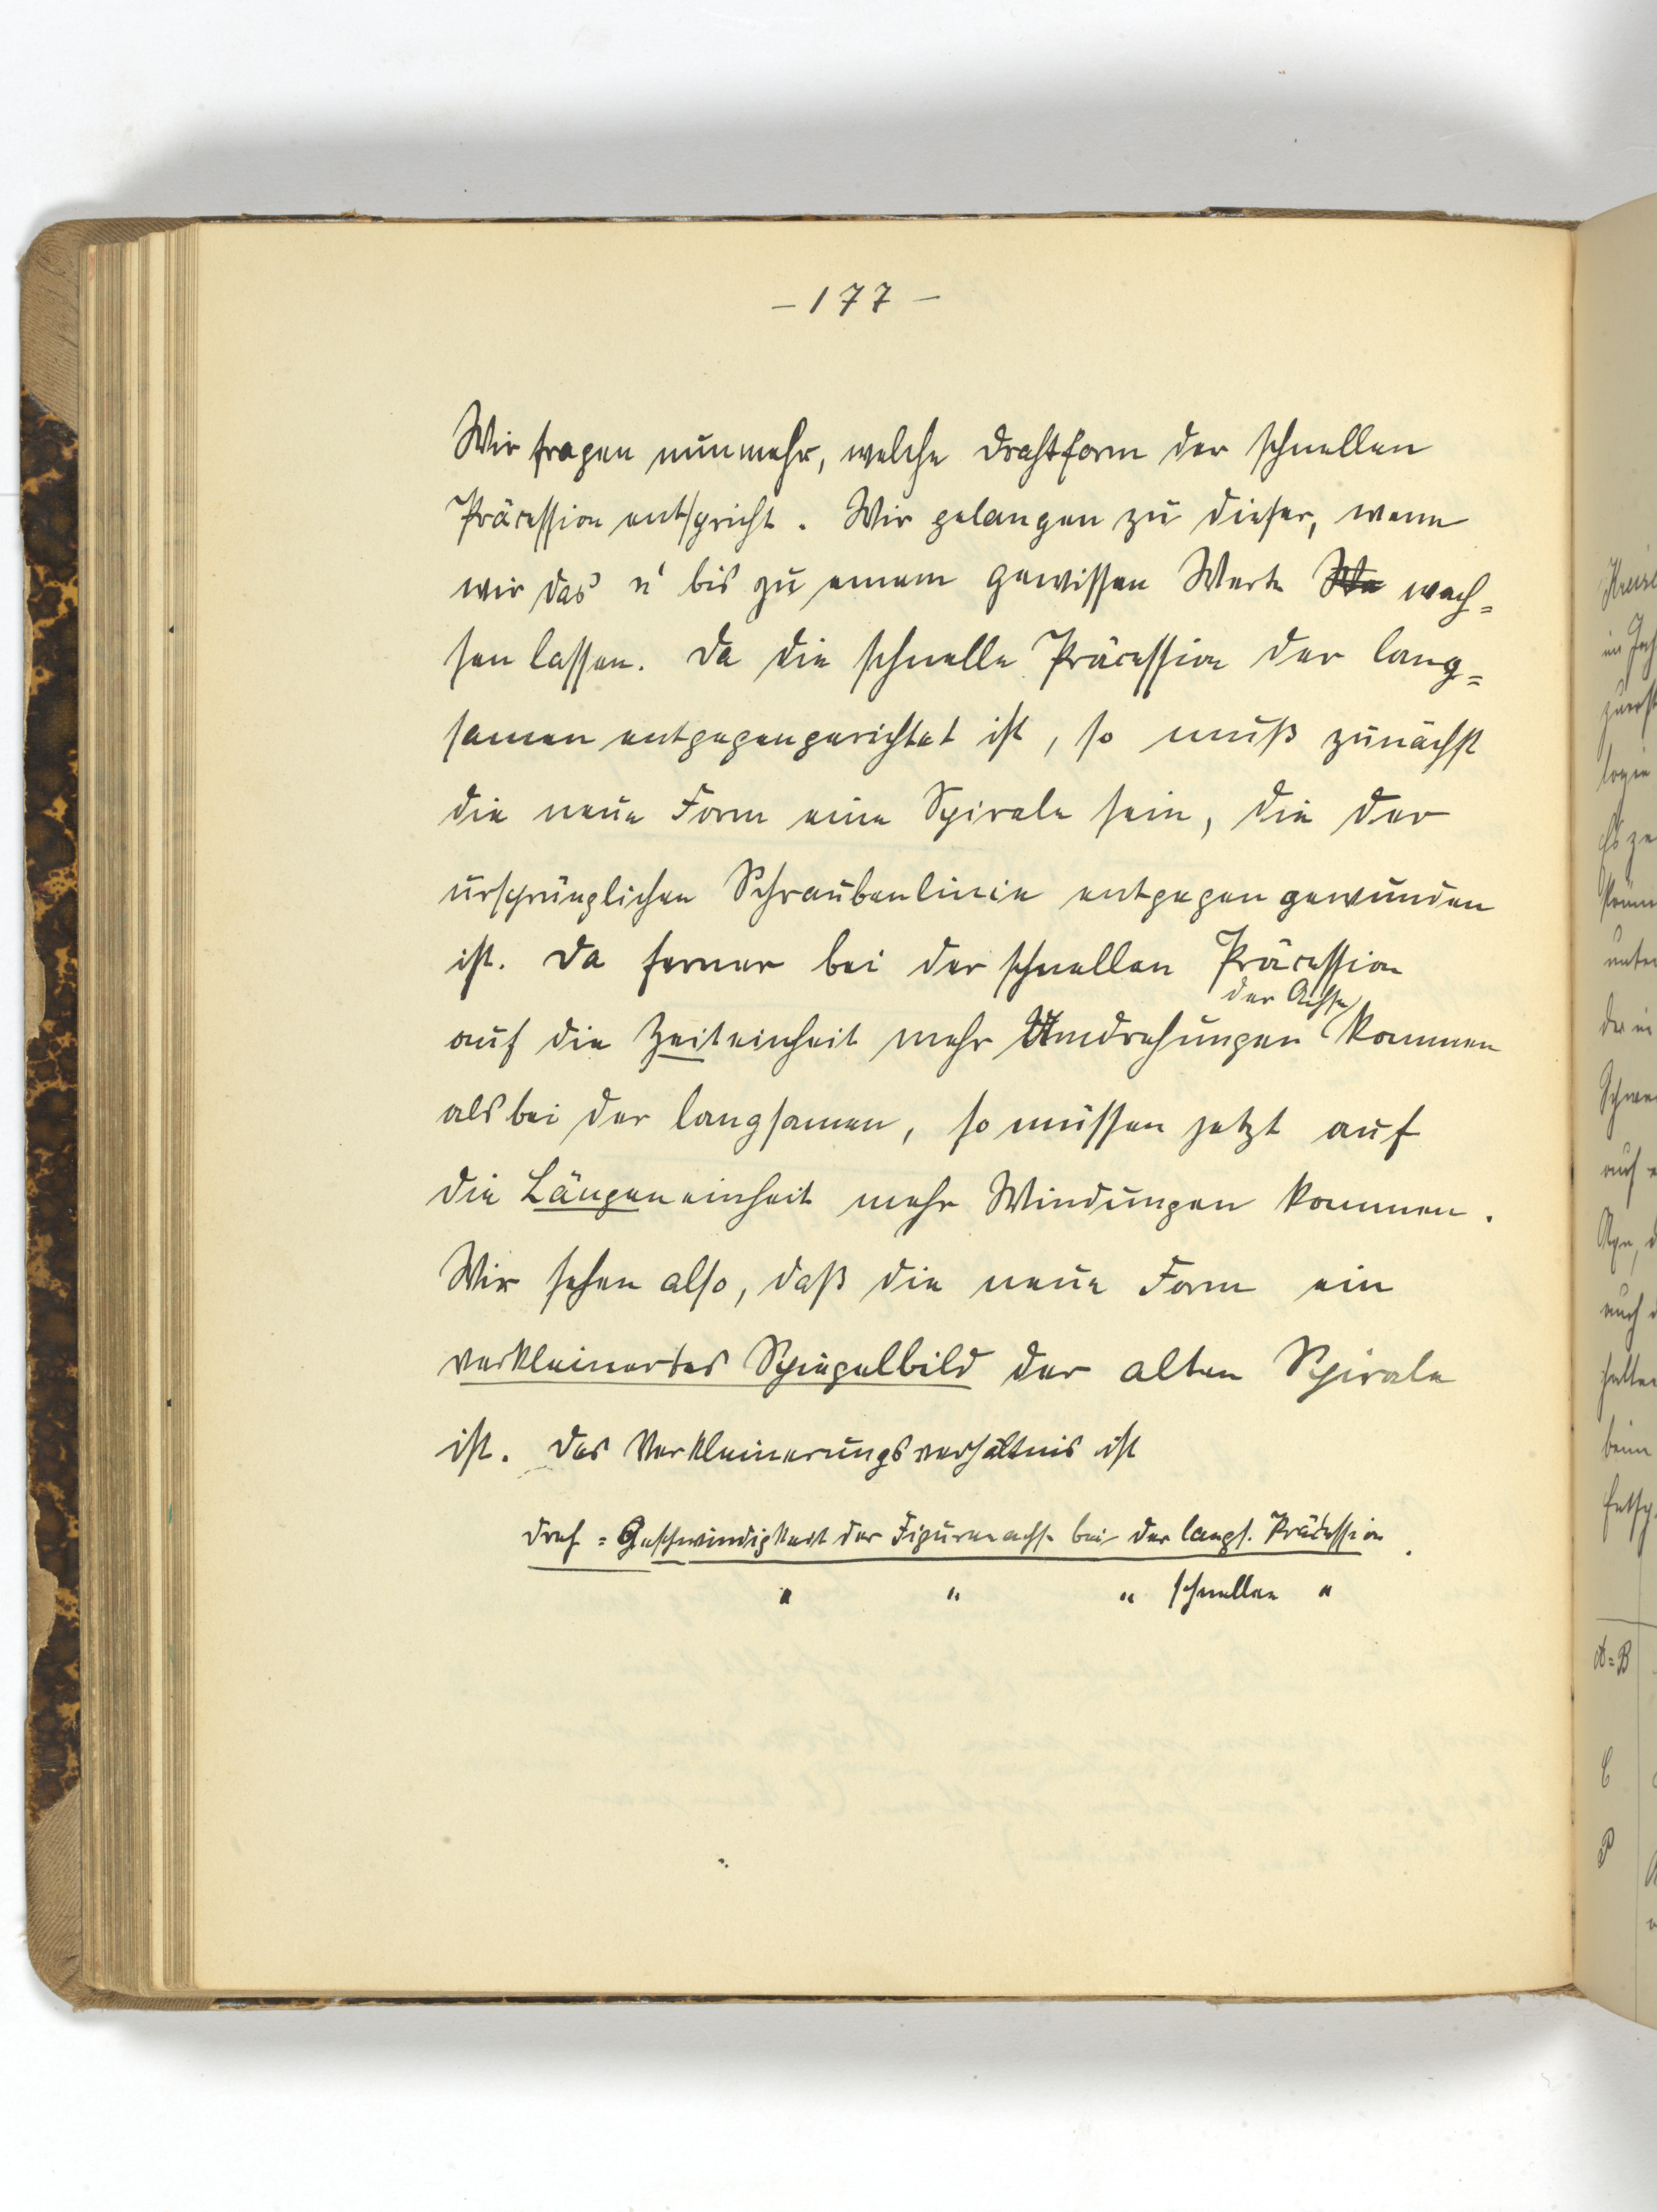 – 177 –
Wir fragen nunmehr, welche Drahtform der schnellen
Präcession entspricht. Wir gelangen zu dieser, wenn
wir das n' bis zu einem gewissen Werte wach=
sen lassen. Da die schnelle Präcession der lang=
samen entgegengerichtet ist, so muß zunächst
die neue Form eine Spirale sein, die der
ursprünglichen Schraubenlinie entgegen gewunden
ist. Da ferner bei der schnellen Präcession
der Achse
auf die Zeiteinheit mehr Umdrehungen kommen
als bei der langsamen, so müssen jetzt auf
die Längeneinheit mehr Windungen kommen.
Wir sehen also, daß die neue Form ein
verkleinertes Spiegelbild der alten Spirale
ist. Das Verkleinerungsverhältnis ist
Dreh=Geschwindigkeit der Figurenachse bei der langs. Präcession.
" " " schnellen "
A=B
C
P